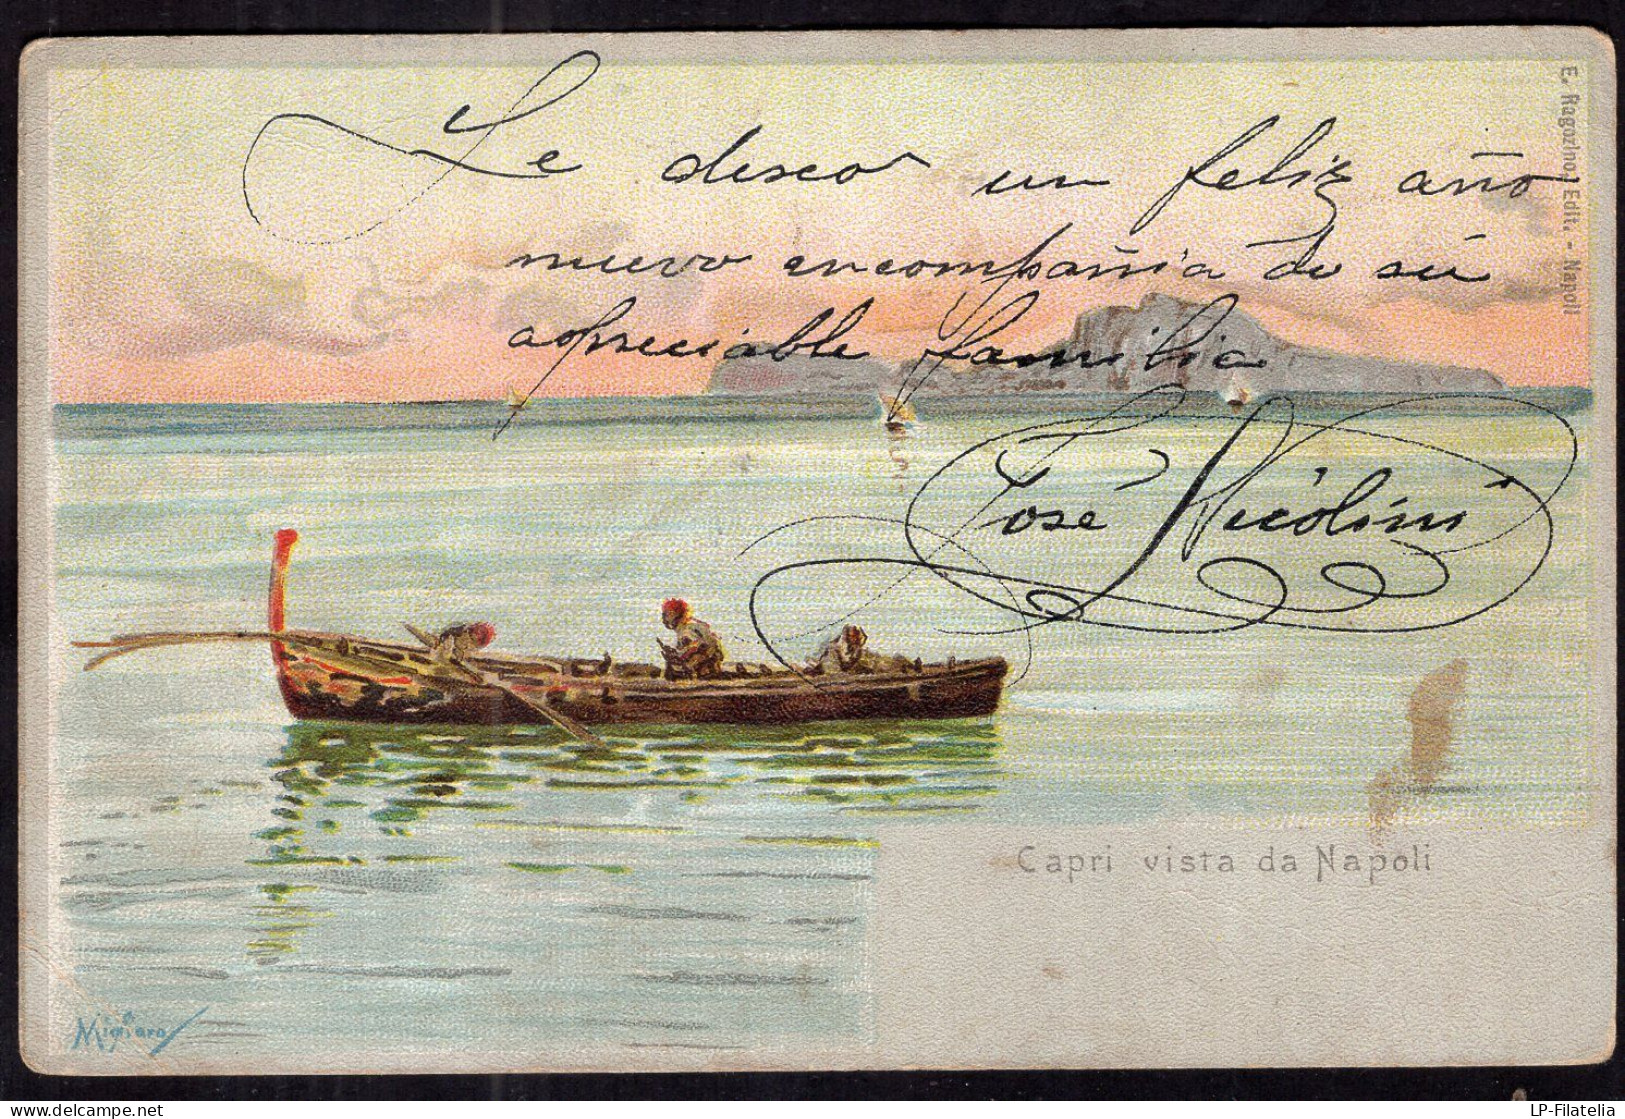 Le deseo un feliz año
nuevo en compañia de sú
apreciable familia
José Nicolini
E. Ragozino, Edit. - Napoli
Capri vista da Napoli
Migliaro
delcampe.net
LP-Filatelia